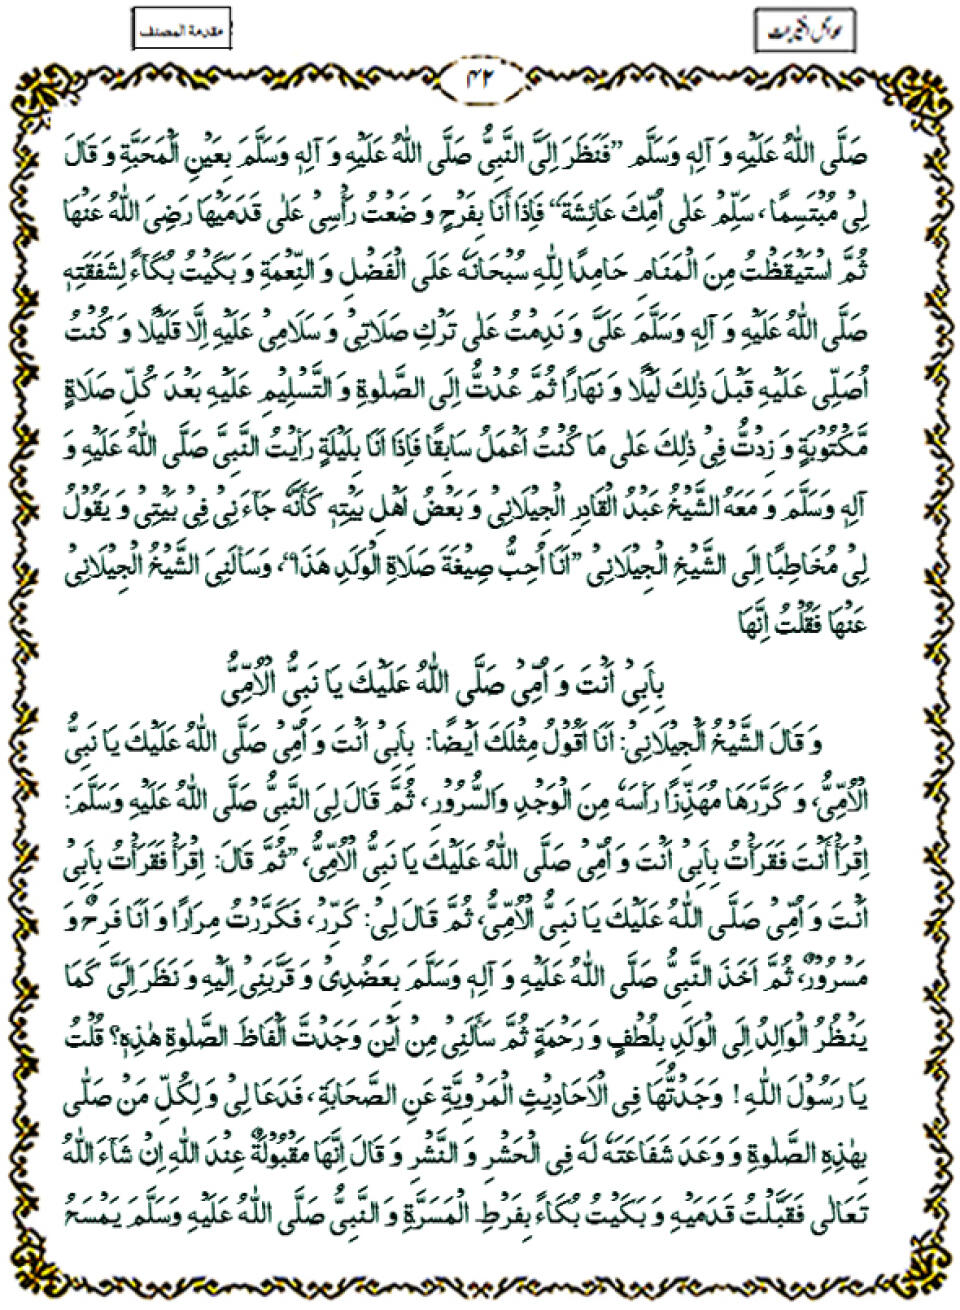 مقدمة المصنف
۴۲
صَلَّى اللّٰهُ عَلَيْهِ وَ آلِهٖ وَسَلَّم "فَنَظَرَ اِلَيَّ النَّبِيُّ صَلَّى اللّٰهُ عَلَيْهِ وَ آلِهٖ وَسَلَّمَ بِعَيْنِ الْمَحَبَّةِ وَ قَالَ
لِيْ مُبْتَسِمًا، سَلِّمْ عَلٰى اُمِّكَ عَائِشَةَ" فَاِذَا أَنَا بِفَرْحٍ وَضَعْتُ رَأْسِيْ عَلٰى قَدَمَيْهَا رَضِيَ اللّٰهُ عَنْهَا
ثُمَّ اسْتَيْقَظْتُ مِنَ الْمَنَامِ حَامِدًا لِلّٰهِ سُبْحَانَهٗ عَلَى الْفَضْلِ وَ النِّعْمَةِ وَ بَكَيْتُ بُكَاءً لِشَفَقَتِهٖ
صَلَّى اللّٰهُ عَلَيْهِ وَ آلِهٖ وَسَلَّمَ عَلَيَّ وَ نَدِمْتُ عَلٰى تَرْكِ صَلَاتِيْ وَ سَلَامِيْ عَلَيْهِ اِلَّا قَلِيْلًا وَ كُنْتُ
اُصَلِّى عَلَيْهِ قَبْلَ ذٰلِكَ لَيْلًا وَ نَهَارًا ثُمَّ عُدْتُّ اِلَى الصَّلٰوةِ وَ التَّسْلِيْمِ عَلَيْهِ بَعْدَ كُلِّ صَلَاةٍ
مَّكْتُوْبَةٍ وَ زِدْتُّ فِيْ ذٰلِكَ عَلٰى مَا كُنْتُ اَعْمَلُ سَابِقًا فَاِذَا اَنَا بِلَيْلَةٍ رَأَيْتُ النَّبِيَّ صَلَّى اللّٰهُ عَلَيْهِ وَ
آلِهٖ وَسَلَّمَ وَ مَعَهُ الشَّيْخُ عَبْدُ الْقَادِرِ الْجِيْلَانِيْ وَ بَعْضُ اَهْلِ بَيْتِهٖ كَأَنَّهٗ جَآءَنِيْ فِيْ بَيْتِيْ وَ يَقُوْلُ
لِيْ مُخَاطِبًا اِلَى الشَّيْخِ الْجِيْلَانِيْ "اَنَا اُحِبُّ صِيْغَةَ صَلَاةِ الْوَلَدِ هَذَا"، وَسَأَلَنِى الشَّيْخُ الْجِيْلَانِيْ
عَنْهَا فَقُلْتُ اِنَّهَا
بِأَبِيْ اَنْتَ وَ اُمِّيْ صَلَّى اللّٰهُ عَلَيْكَ يَا نَبِيُّ الْاُمِّيُّ
وَ قَالَ الشَّيْخُ الْجِيْلَانِيْ: اَنَا اَقُوْلُ مِثْلَكَ اَيْضًا: بِأَبِيْ اَنْتَ وَ اُمِّيْ صَلَّى اللّٰهُ عَلَيْكَ يَا نَبِيُّ
الْاُمِّيُّ، وَ كَرَّرَهَا مُهَذِّزًا رَأْسَهٗ مِنَ الْوَجْدِ وَالسُّرُوْرِ، ثُمَّ قَالَ لِيَ النَّبِيُّ صَلَّى اللّٰهُ عَلَيْهِ وَسَلَّمَ:
اِقْرَأْ أَنْتَ فَقَرَأْتُ بِأَبِيْ اَنْتَ وَ اُمِّيْ صَلَّى اللّٰهُ عَلَيْكَ يَا نَبِيُّ الْاُمِّيُّ، "ثُمَّ قَالَ: اِقْرَأْ فَقَرَأْتُ بِأَبِيْ
اَنْتَ وَ اُمِّيْ صَلَّى اللّٰهُ عَلَيْكَ يَا نَبِيُّ الْاُمِّيُّ، ثُمَّ قَالَ لِيْ: كَرِّرْ، فَكَرَّرْتُ مِرَارًا وَ اَنَا فَرِحٌ وَ
مَسْرُوْرٌ، ثُمَّ اَخَذَ النَّبِيُّ صَلَّى اللّٰهُ عَلَيْهِ وَ آلِهٖ وَسَلَّمَ بِعَضُدِيْ وَ قَرَّبَنِيْ اِلَيْهِ وَ نَظَرَ اِلَيَّ كَمَا
يَنْظُرُ الْوَالِدُ اِلَى الْوَلَدِ بِلُطْفٍ وَ رَحْمَةٍ ثُمَّ سَأَلَنِيْ مِنْ اَيْنَ وَجَدْتَّ اَلْفَاظَ الصَّلٰوةِ هٰذِهٖ؟ قُلْتُ
يَا رَسُوْلَ اللّٰهِ! وَجَدْتُّهَا فِى الْاَحَادِيْثِ الْمَرْوِيَّةِ عَنِ الصَّحَابَةِ، فَدَعَا لِيْ وَ لِكُلِّ مَنْ صَلّٰى
بِهٰذِهِ الصَّلٰوةِ وَ وَعَدَ شَفَاعَتَهٗ لَهٗ فِى الْحَشْرِ وَ النَّشْرِ وَ قَالَ اِنَّهَا مَقْبُوْلَةٌ عِنْدَ اللّٰهِ اِنْ شَآءَ اللّٰهُ
تَعَالٰى فَقَبَّلْتُ قَدَمَيْهِ وَ بَكَيْتُ بُكَاءً بِفَرْطِ الْمَسَرَّةِ وَ النَّبِيُّ صَلَّى اللّٰهُ عَلَيْهِ وَسَلَّمَ يَمْسَحُ